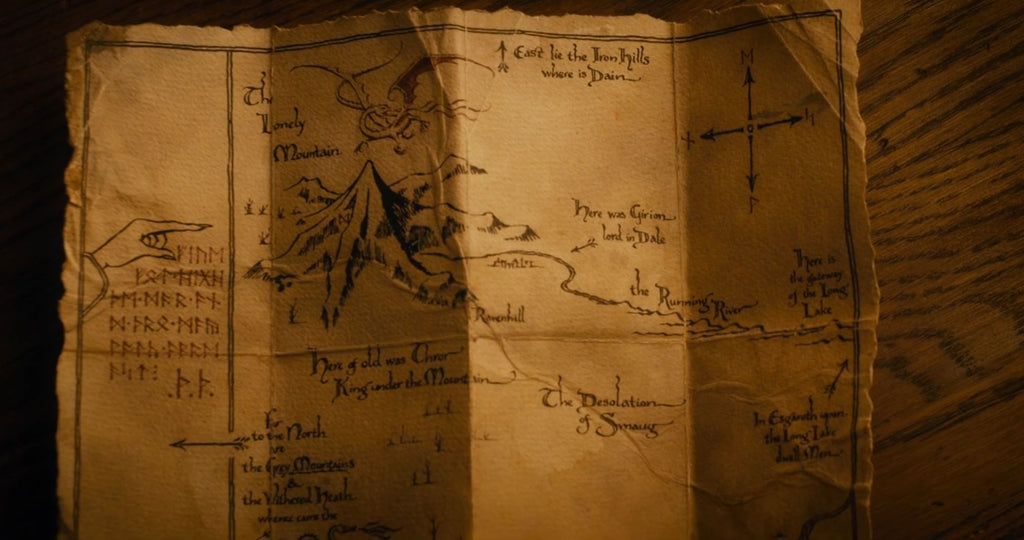 East lie the Iron Hills
where is Dain
The
Lonely
Mountain
Here was Girion
lord in Dale
Here is
the gateway
of the Long
Lake
the Running River
Ravenhill
Here of old was Thror
King under the Mountain
The Desolation
of Smaug
In Esgaroth upon
the Long Lake
dwell Men
Far
to the North
are
the Grey Mountains
&
the Withered Heath
whence came the